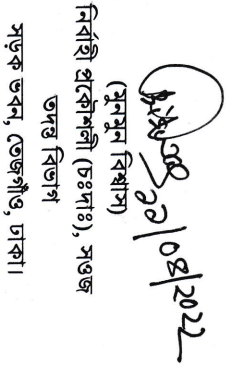 ২২/০৪/2022
(মুনমুন বিশ্বাস)
নির্বাহী প্রকৌশলী (চঃদাঃ), সওজ
তদন্ত বিভাগ
সড়ক ভবন, তেজগাঁও, ঢাকা।